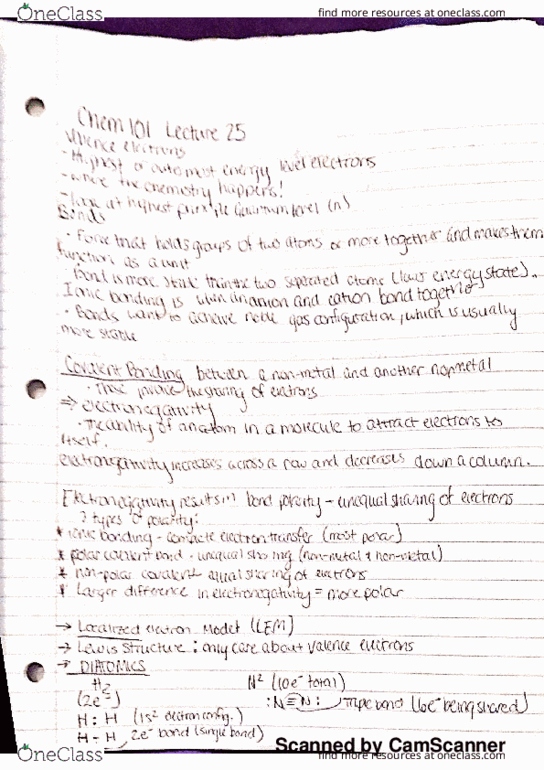 OneClass
find more resources at oneclass.com
Chem 101 Lecture 25
Valence electrons
- Highest or outermost energy level electrons
- where the chemistry happens!
- Look at highest principle quantum level (n)
Bonds
· Force that holds groups of two atoms or more together and makes them
function as a unit
· Bond is more stable than the two separated atoms (lower energy state).
Ionic bonding is when an anion and cation bond together
· Bonds want to achieve noble gas configuration, which is usually
more stable
Covalent Bonding between a non-metal and another nonmetal
· These involve the sharing of electrons
⇒ electronegativity
· The ability of an atom in a molecule to attract electrons to
itself.
electronegativity increases across a row and decreases down a column.
Electronegativity results in bond polarity - unequal sharing of electrons
3 types of polarity:
* ionic bonding - complete electron transfer (most polar)
* polar covalent bond - unequal sharing (non-metal + non-metal)
* non-polar covalent equal sharing of electrons
* Larger difference in electronegativity = more polar
→ Localized electron Model (LEM)
→ Lewis Structure: only care about valence electrons
→ DIATOMICS
H2 N² (10e⁻ total)
(2e⁻) :N≡N: triple bond (6e⁻ being shared)
H : H (1s² electron config.)
H - H 2e⁻ bond (single bond)
Scanned by CamScanner
OneClass
find more resources at oneclass.com